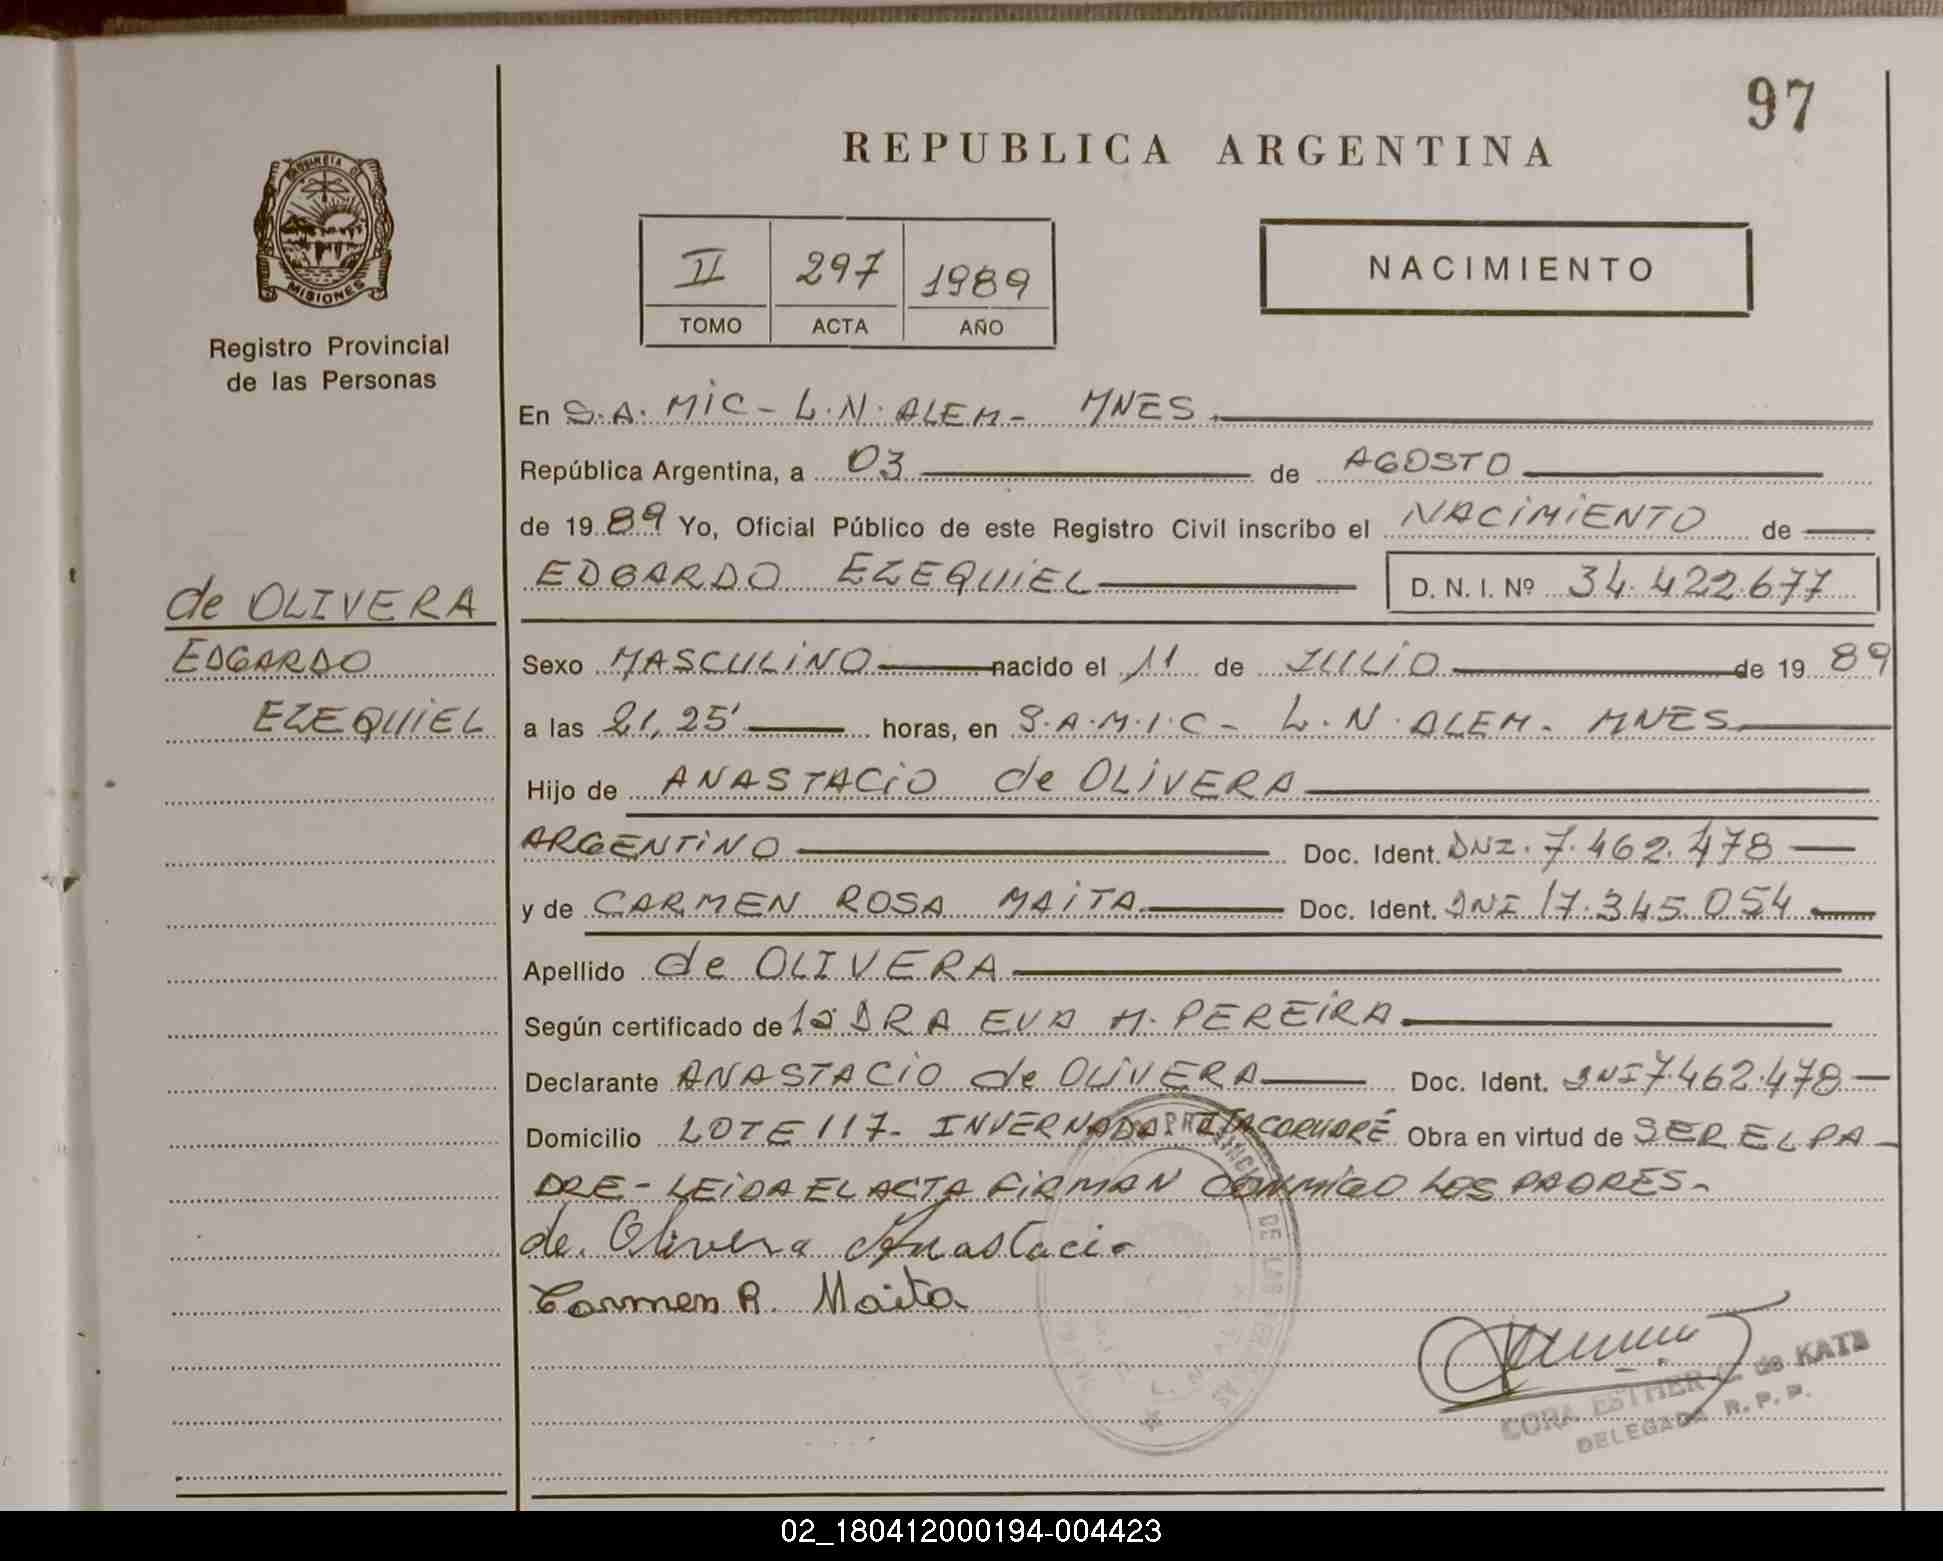 97
REPUBLICA ARGENTINA
PROVINCIA DE
MISIONES
Registro Provincial
de las Personas
II 297 1989
TOMO ACTA AÑO
NACIMIENTO
En S.A. MiC - L.N. ALEM - MNES.
República Argentina, a 03 de AGOSTO
de 1989 Yo, Oficial Público de este Registro Civil inscribo el NACiMiENTO de
EDGARDO EZEQUiEL D. N. I. Nº 34.422.677
de OLIVERA
EDGARDO
EZEQUiEL
Sexo MASCULiNO nacido el 11 de JULiO de 1989
a las 21,25' horas, en S.A.M.I.C - L.N. ALEM. MNES
Hijo de ANASTACiO de OLiVERA
ARGENTiNO Doc. Ident. DNI. 7.462.478
y de CARMEN ROSA MAiTA Doc. Ident. DNI 17.345.054
Apellido de OLIVERA
Según certificado de la DRA EVA M. PEREiRA
Declarante ANASTACiO de OLiVERA Doc. Ident. DNI 7.462.478
Domicilio LOTE 117 - INVERNADA ITACORUARÉ Obra en virtud de SER EL PA
DRE - LEiDA EL ACTA FiRMAN CONMiGO LOS PADRES.
de Olivera Anastacio
Carmen R. Maita
CORA ESTHER C. de KATZ
DELEGADA R. P. P.
02_180412000194-004423